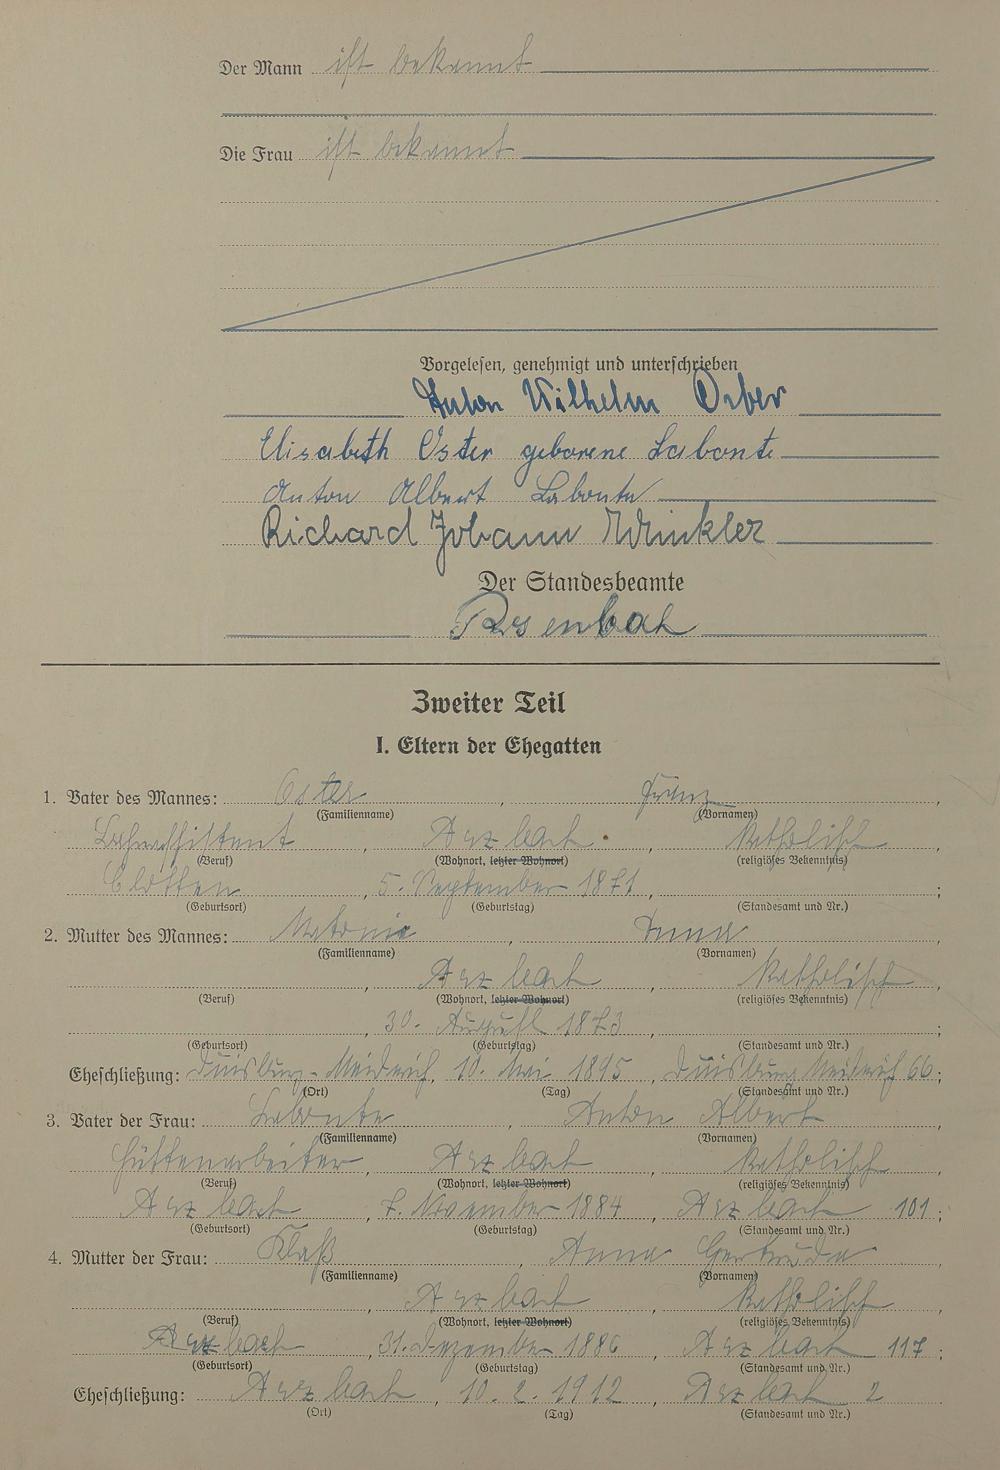 Der Mann ist bekannt
Die Frau ist bekannt
Vorgelesen, genehmigt und unterschrieben
Anton Wilhelm Oster
Elisabeth Oster geborene Labonte
Anton Albert Labonte
Richard Johann Winkler
Der Standesbeamte
Zweiter Teil
I. Eltern der Ehegatten
1. Vater des Mannes: Oster, Franz,
(Familienname) (Vornamen)
Arzbach, katholisch
(Beruf) (Wohnort, letzter Wohnort) (religiöses Bekenntnis)
Clotten, 5. September 1871, ;
(Geburtsort) (Geburtstag) (Standesamt und Nr.)
2. Mutter des Mannes: , Anna,
(Familienname) (Vornamen)
, Arzbach, katholisch
(Beruf) (Wohnort, letzter Wohnort) (religiöses Bekenntnis)
, 30. August 1873, ;
(Geburtsort) (Geburtstag) (Standesamt und Nr.)
Eheschließung: Duisburg-Meiderich, 10. Mai 1895, Duisburg Meiderich 66;
(Ort) (Tag) (Standesamt und Nr.)
3. Vater der Frau: Labonte, Anton Albert,
(Familienname) (Vornamen)
Hüttenarbeiter, Arzbach, katholisch,
(Beruf) (Wohnort, letzter Wohnort) (religiöses Bekenntnis)
Arzbach, 7. November 1884, Arzbach 101;
(Geburtsort) (Geburtstag) (Standesamt und Nr.)
4. Mutter der Frau: Klaß, Anna Gertruda,
(Familienname) (Vornamen)
, Arzbach, katholisch,
(Beruf) (Wohnort, letzter Wohnort) (religiöses Bekenntnis)
Arzbach, 31. Dezember 1886, Arzbach 117;
(Geburtsort) (Geburtstag) (Standesamt und Nr.)
Eheschließung: Arzbach, 10. 2. 1912, Arzbach 2
(Ort) (Tag) (Standesamt und Nr.)